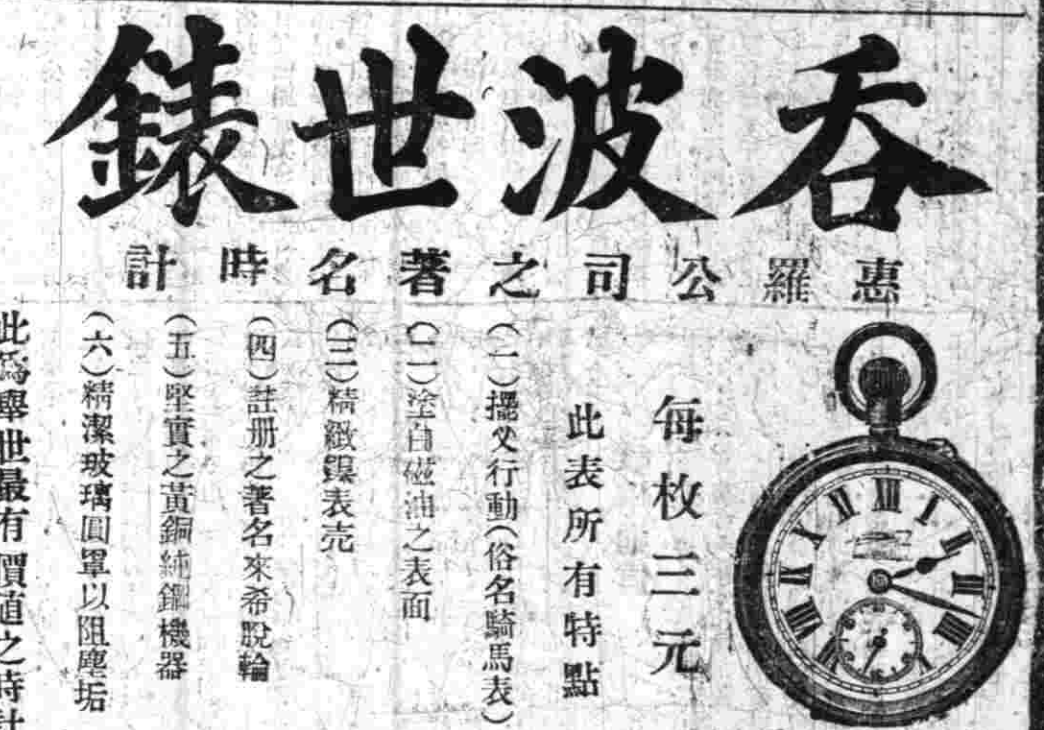 吞波世錶
惠羅公司之著名時計
每枚三元
此表所有特點
(一)擺义行動(俗名騎馬表)
(二)塗白磁油之表面
(三)精緻鎳表壳
(四)註册之著名來希脫輪
(五)堅實之黃銅純鋼機器
(六)精潔玻璃圓罩以阻塵垢
此爲舉世最有價值之時計